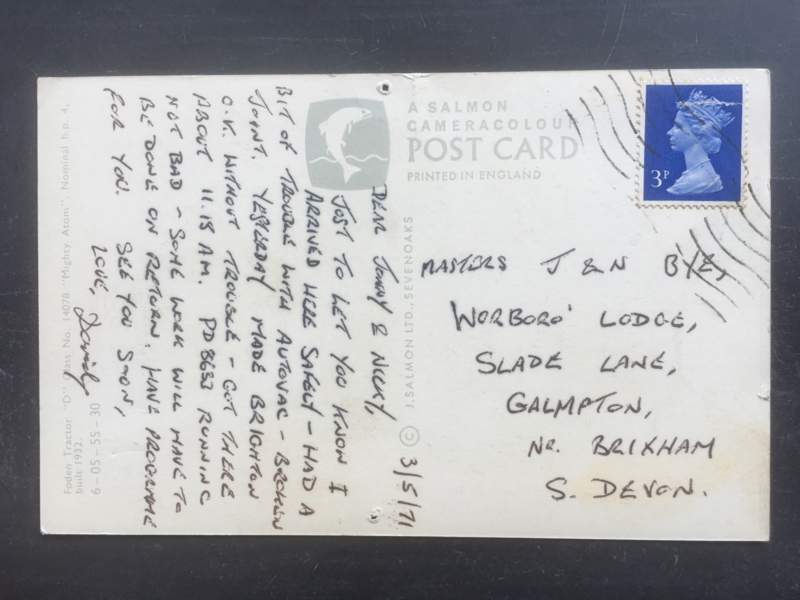 A SALMON
CAMERACOLOUR
POST CARD
PRINTED IN ENGLAND
3P
© J. SALMON LTD., SEVENOAKS
Foden Tractor "D" Class No. 14078 "Mighty Atom". Nominal h.p. 4,
built 1932.
6-05-55-30
3/5/71
DEAR JONNY & NICKY,
JUST TO LET YOU KNOW I
ARRIVED HERE SAFELY - HAD A
BIT OF TROUBLE WITH AUTOVAC - BROKEN
JOINT. YESTERDAY MADE BRIGHTON
O.K. WITHOUT TROUBLE - GOT THERE
ABOUT 11.15 AM. PD 8653 RUNNING
NOT BAD - SOME WORK WILL HAVE TO
BE DONE ON RETURN. HAVE PROGRAMME
FOR YOU. SEE YOU SOON,
LOVE, David
MASTERS J & N BYE,
WORBORO' LODGE,
SLADE LANE,
GALMPTON,
NR. BRIXHAM
S. DEVON.